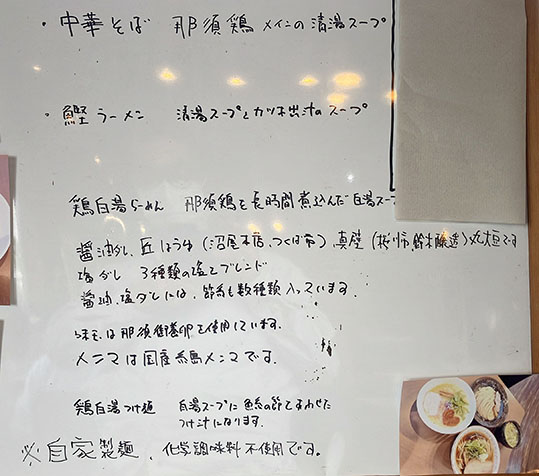 ・中華そば 那須鶏メインの清湯スープ
・鰹ラーメン 清湯スープとカツオ出汁のスープ
鶏白湯らーめん 那須鶏を長時間煮込んだ白湯スープ
醤油ダレ、匠ほうゆ(沼屋本店、つくば市)、真壁(桜川市、鈴木醸造)丸大豆です
塩ダレ 3種類の塩をブレンド
醤油、塩ダレには、節系も数種類入っています。
味玉は那須御養卵を使用しています。
メンマは国産糸島メンマです。
鶏白湯つけ麺 白湯スープに魚系の節をあわせた
つけ汁になります。
※自家製麺、化学調味料不使用です。